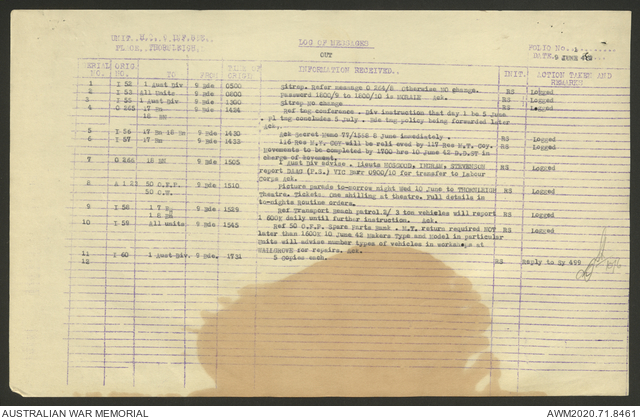 UNIT. H.Q. 9 INF BDE.
PLACE. THORLEIGH.
LOG OF MESSAGES
OUT
FOLIO No. 1
DATE. 9 JUNE 42
SERIAL NO. ORIG NO. TO FROM TIME OF ORIGIN INFORMATION RECEIVED. INIT. ACTION TAKEN AND REMARKS
1 I 52 1 Aust Div 9 Bde 0500 Sitrep. Refer message O 264/8 Otherwise NO change. RS Logged
2 I 53 All Units 9 Bde 0600 Password 1800/9 to 1800/10 is MORALE Ack. RS Logged
3 I 55 1 Aust Div 9 Bde 1300 Sitrep no change RS Logged
4 O 265 17 Bn 9 Bde 1424 Ref tag conference. Div instruction that day 1 be 5 June
18 BN . Pl tag concludes 5 July . Bde tag policy being forwarded later
Ack.
5 I 56 17 Bn 18 Bn 9 Bde 1430 Ack Secret Memo 77/1558 8 June immediately . RS Logged
6 I 57 17 Bn 9 Bde 1433 116 Res M.T. Coy will be relieved by 117 Res M.T. Coy. RS Logged
Movements to be completed by 1700 hrs 10 June 42 D.D.ST in
charge of movement.
7 O 266 18 BN 9 Bde 1505 1 Aust Div advice . Lieuts STEVENSON RS Logged
report (P.S.) VIC Barr 0900/10 for transfer to Labour
Corps Ack.
8 A 122 50 O.F.P. 9 Bde 1510 Picture parade to-morrow night Wed 10 June to THORNLEIGH RS Logged
50 O.W. Theatre. Tickets. One shilling at theatre. Full details in
to-nights Routine orders.
9 I 58 9 Bde 1529 Ref Transport beach patrol. 2/ 3 ton vehicles will report RS Logged
18 Bn 1 600K daily until further instruction. Ack.
10 I 59 All units 9 Bde 1545 Ref 50 O.F.P. Spare Parts Bank . M.T. return required NOT RS Logged
later than 1600K 10 June 42 Makers Type and Model in particular
Units will advise number types of vehicles in workshops at
WALLGROVE for repairs. Ack.
11 I 60 1 Aust Div. 9 Bde. 1731 5 Copies each. RS Reply to Sy 499
12
AUSTRALIAN WAR MEMORIAL
AWM2020.71.8461